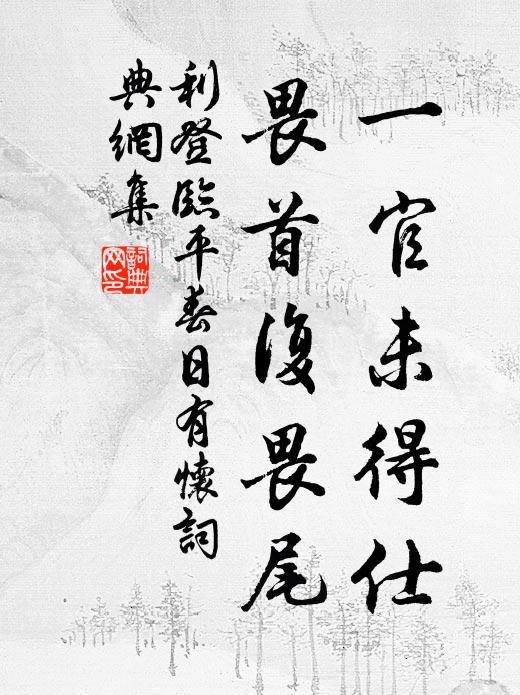 一官未得仕
畏首復畏尾
利登臨平春日有懷詞
典網集
詞典
网印